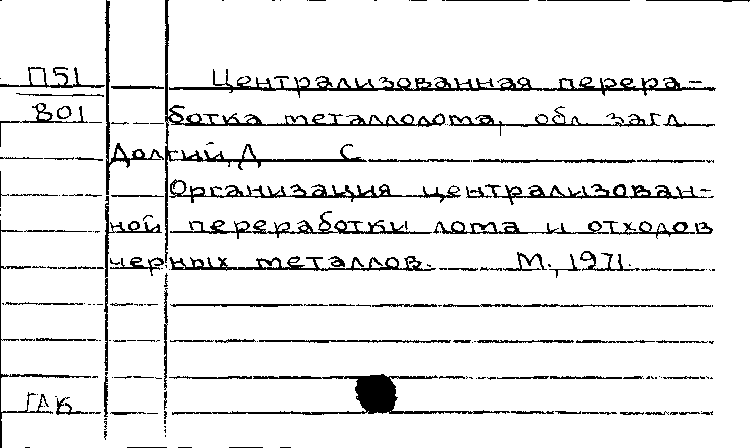 П51 Централизованная перера-
801 ботка металлолома, обл. загл.
Долгий, Д С
Организация централизован-
ной переработки лома и отходов
черных металлов. М., 1971.
ГАК